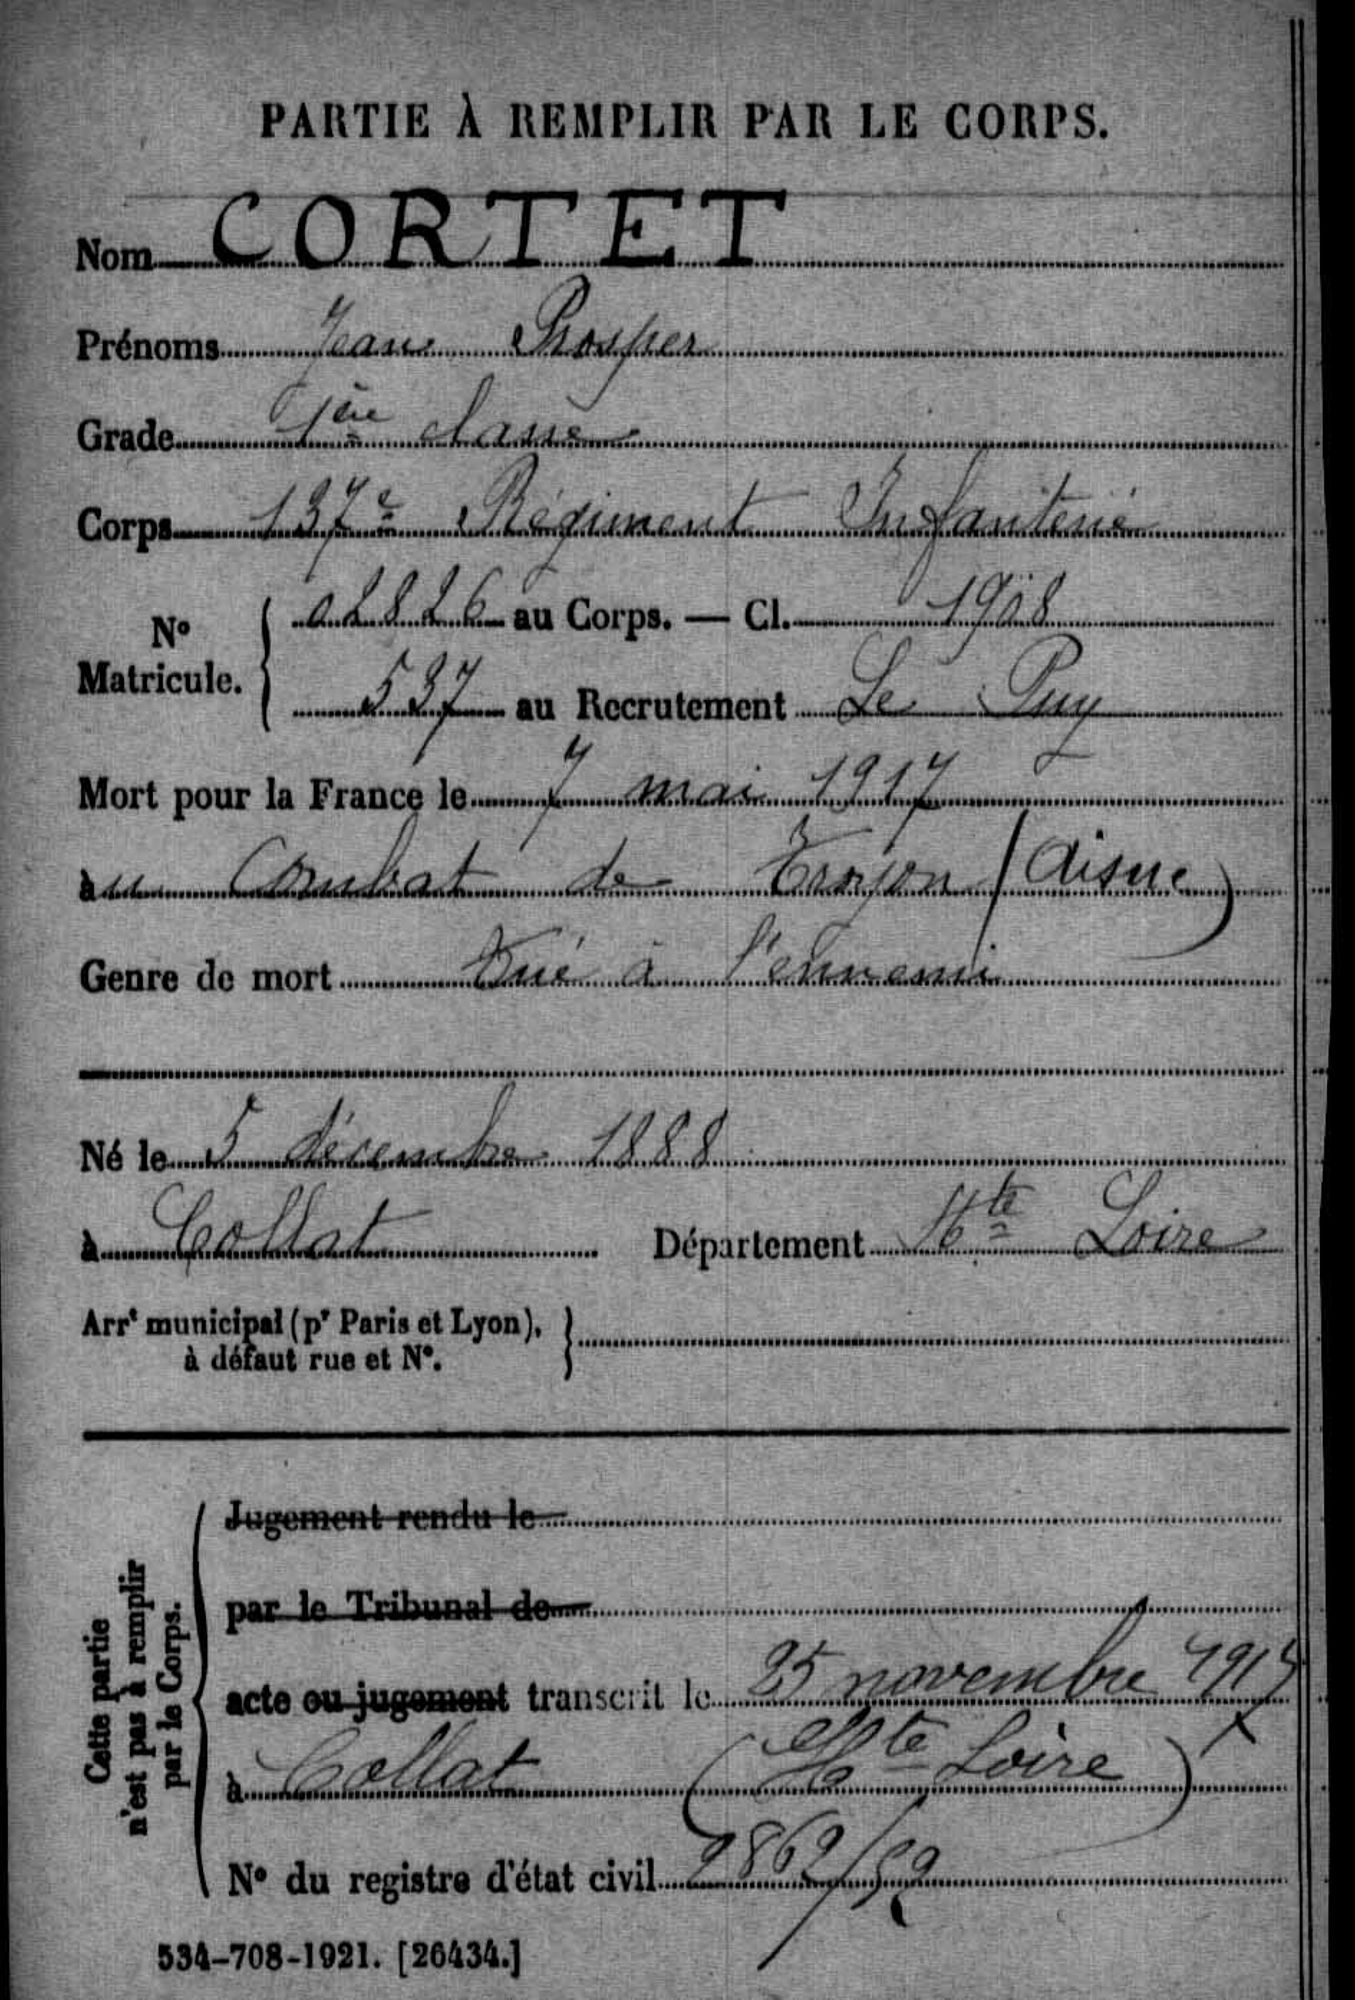 PARTIE À REMPLIR PAR LE CORPS.
Nom CORTET
Prénoms Jean Prosper
Grade 1ère classe
Corps 137e Régiment Infanterie
N° Matricule. 02826 au Corps. — Cl. 1908
537 au Recrutement Le Puy
Mort pour la France le 7 mai 1917
au Combat de Troyon (Aisne)
Genre de mort Tué à l'ennemi
Né le 5 décembre 1888
à Collat Département Hte Loire
Arrt municipal (pr Paris et Lyon),
à défaut rue et N°.
Cette partie
n'est pas à remplir
par le Corps.
Jugement rendu le
par le Tribunal de
acte ou jugement transcrit le 25 novembre 1917
à Collat (Hte Loire)
N° du registre d'état civil 2862/52
534-708-1921. [26434.]